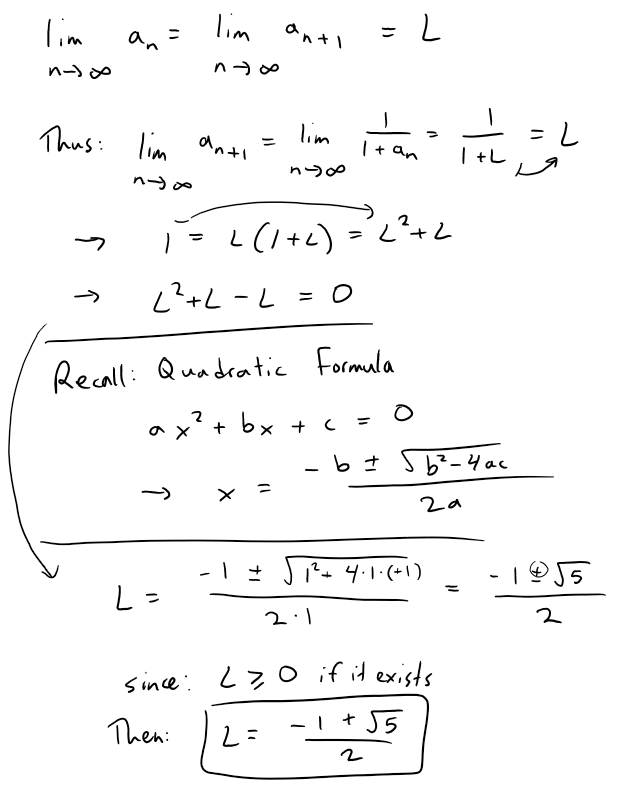 lim n→∞ aₙ = lim n→∞ aₙ₊₁ = L
Thus: lim n→∞ aₙ₊₁ = lim n→∞ 1/(1+aₙ) = 1/(1+L) = L
→ 1 = L(1+L) = L²+L
→ L²+L-L = 0
Recall: Quadratic Formula
ax² + bx + c = 0
→ x = (-b ± √(b²-4ac))/(2a)
L = (-1 ± √(1²+4·1·(+1)))/(2·1) = (-1 ± √5)/2
since: L ≥ 0 if it exists
Then: L = (-1+√5)/2